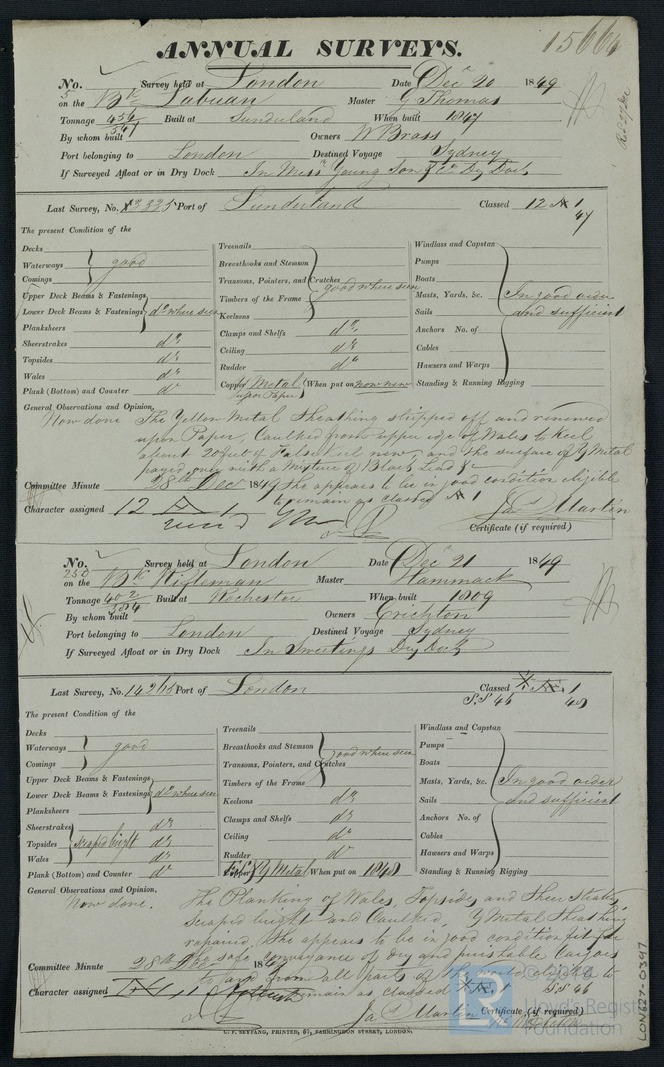 15664
ANNUAL SURVEYS.
No. 5 Survey held at London Date Decr 20 1849
on the Bk Labuan Master G Thomas
Tonnage 456 547 Built at Sunderland When built 1847
By whom built Owners W Brass
Port belonging to London Destined Voyage Sydney
If Surveyed Afloat or in Dry Dock In Messrs Young Son & Co Dry Dock
Last Survey, No. Port of Sunderland Classed 12 A 1 47
The present Condition of the
Decks
Waterways good
Comings
Upper Deck Beams & Fastenings
Lower Deck Beams & Fastenings do where seen
Planksheers
Sheerstrakes do
Topsides do
Wales do
Plank (Bottom) and Counter do
Treenails
Breasthooks and Stemson
Transoms, Pointers, and Crutches good where seen
Timbers of the Frame
Keelsons
Clamps and Shelfs do
Ceiling do
Rudder do
Copper Metal When put on now new
upon Paper
Windlass and Capstan
Pumps
Boats
Masts, Yards, &c. In good order
Sails and sufficient
Anchors No. of
Cables
Hawsers and Warps
Standing & Running Rigging
General Observations and Opinion,
Now done The Yellow Metal Sheathing stripped off and renewed
upon Paper, Caulked from upper edge of Wales to Keel
about 20 feet of False Keel new, and the surface of Y Metal
payed over with a Mixture of Black Lead &c
Committee Minute 28th Decr 1849 She appears to be in good condition eligible
to remain as classed A 1
Character assigned 12 A 1 Jas Martin
Certificate (if required)
No. 250 Survey held at London Date Decr 21 1849
on the Bk Wigleman Master Hammack
Tonnage 402 384 Built at Rochester When built 1809
By whom built Owners Crichton
Port belonging to London Destined Voyage Sydney
If Surveyed Afloat or in Dry Dock In Sweetings Dry Dock
Last Survey, No. Port of London Classed Æ 1
S.S 46 48
The present Condition of the
Decks
Waterways good
Comings
Upper Deck Beams & Fastenings
Lower Deck Beams & Fastenings do where seen
Planksheers
Sheerstrakes do
Topsides scraped bright do
Wales do
Plank (Bottom) and Counter do
Treenails
Breasthooks and Stemson good where seen
Transoms, Pointers, and Crutches
Timbers of the Frame
Keelsons do
Clamps and Shelfs do
Ceiling do
Rudder do
Copper Y Metal When put on 1848
Windlass and Capstan
Pumps
Boats
Masts, Yards, &c. In good order
Sails and sufficient
Anchors No. of
Cables
Hawsers and Warps
Standing & Running Rigging
General Observations and Opinion,
Now done. The Planking of Wales, Topsides and Sheerstrakes
scraped bright and Caulked, Y Metal Sheathing
repaired. She appears to be in good condition fit for
the safe conveyance of dry and perishable Cargoes
Committee Minute 28th Dec 1849 to and from all parts of the world eligible to
Character assigned Æ 1 remain as classed Æ 1 S.S 46
Jas Martin Certificate (if required)
C. F. SEYFANG, PRINTED, 57, FARRINGDON STREET, LONDON.
LR
Lloyd's Register
Foundation
LON627-0397